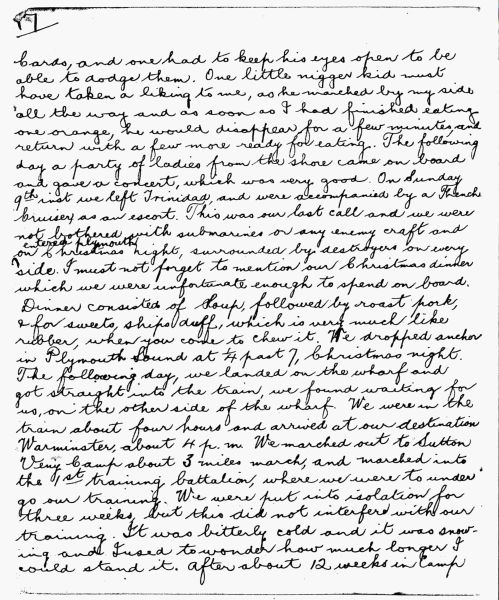 7
Cards, and one had to keep his eyes open to be
able to dodge them. One little nigger kid must
have taken a liking to me, as he marched by my side
all the way and as soon as I had finished eating
one orange, he would disappear for a few minutes, and
return with a few more ready for eating. The following
day a party of ladies from the shore came on board
and gave a concert, which was very good. On Sunday
9th inst we left Trinidad, and were accompanied by a French
Cruiser as an escort. This was our last call and we were
not bothered with submarines or any enemy craft and
entered plymouth
on Christmas night, surrounded by destroyers on every
side. I must not forget to mention our Christmas dinner
which we were unfortunate enough to spend on board.
Dinner consisted of Soup, followed by roast pork,
& for sweets, ships duff, which is very much like
rubber, when you come to chew it. We dropped anchor
in Plymouth Sound at ¼ past 7, Christmas night.
The following day, we landed on the wharf and
got straight into the train, we found waiting for
us, on the other side of the wharf. We were in the
train about four hours and arrived at our destination
Warminster, about 4 p.m. We marched out to Sutton
Veny Camp about 3 miles march, and marched into
the 1st training Battalion, where we were to under
go our training. We were put into isolation for
three weeks, but this did not interfere with our
training. It was bitterly cold and it was snow-
ing and I used to wonder how much longer I
could stand it. After about 12 weeks in Camp